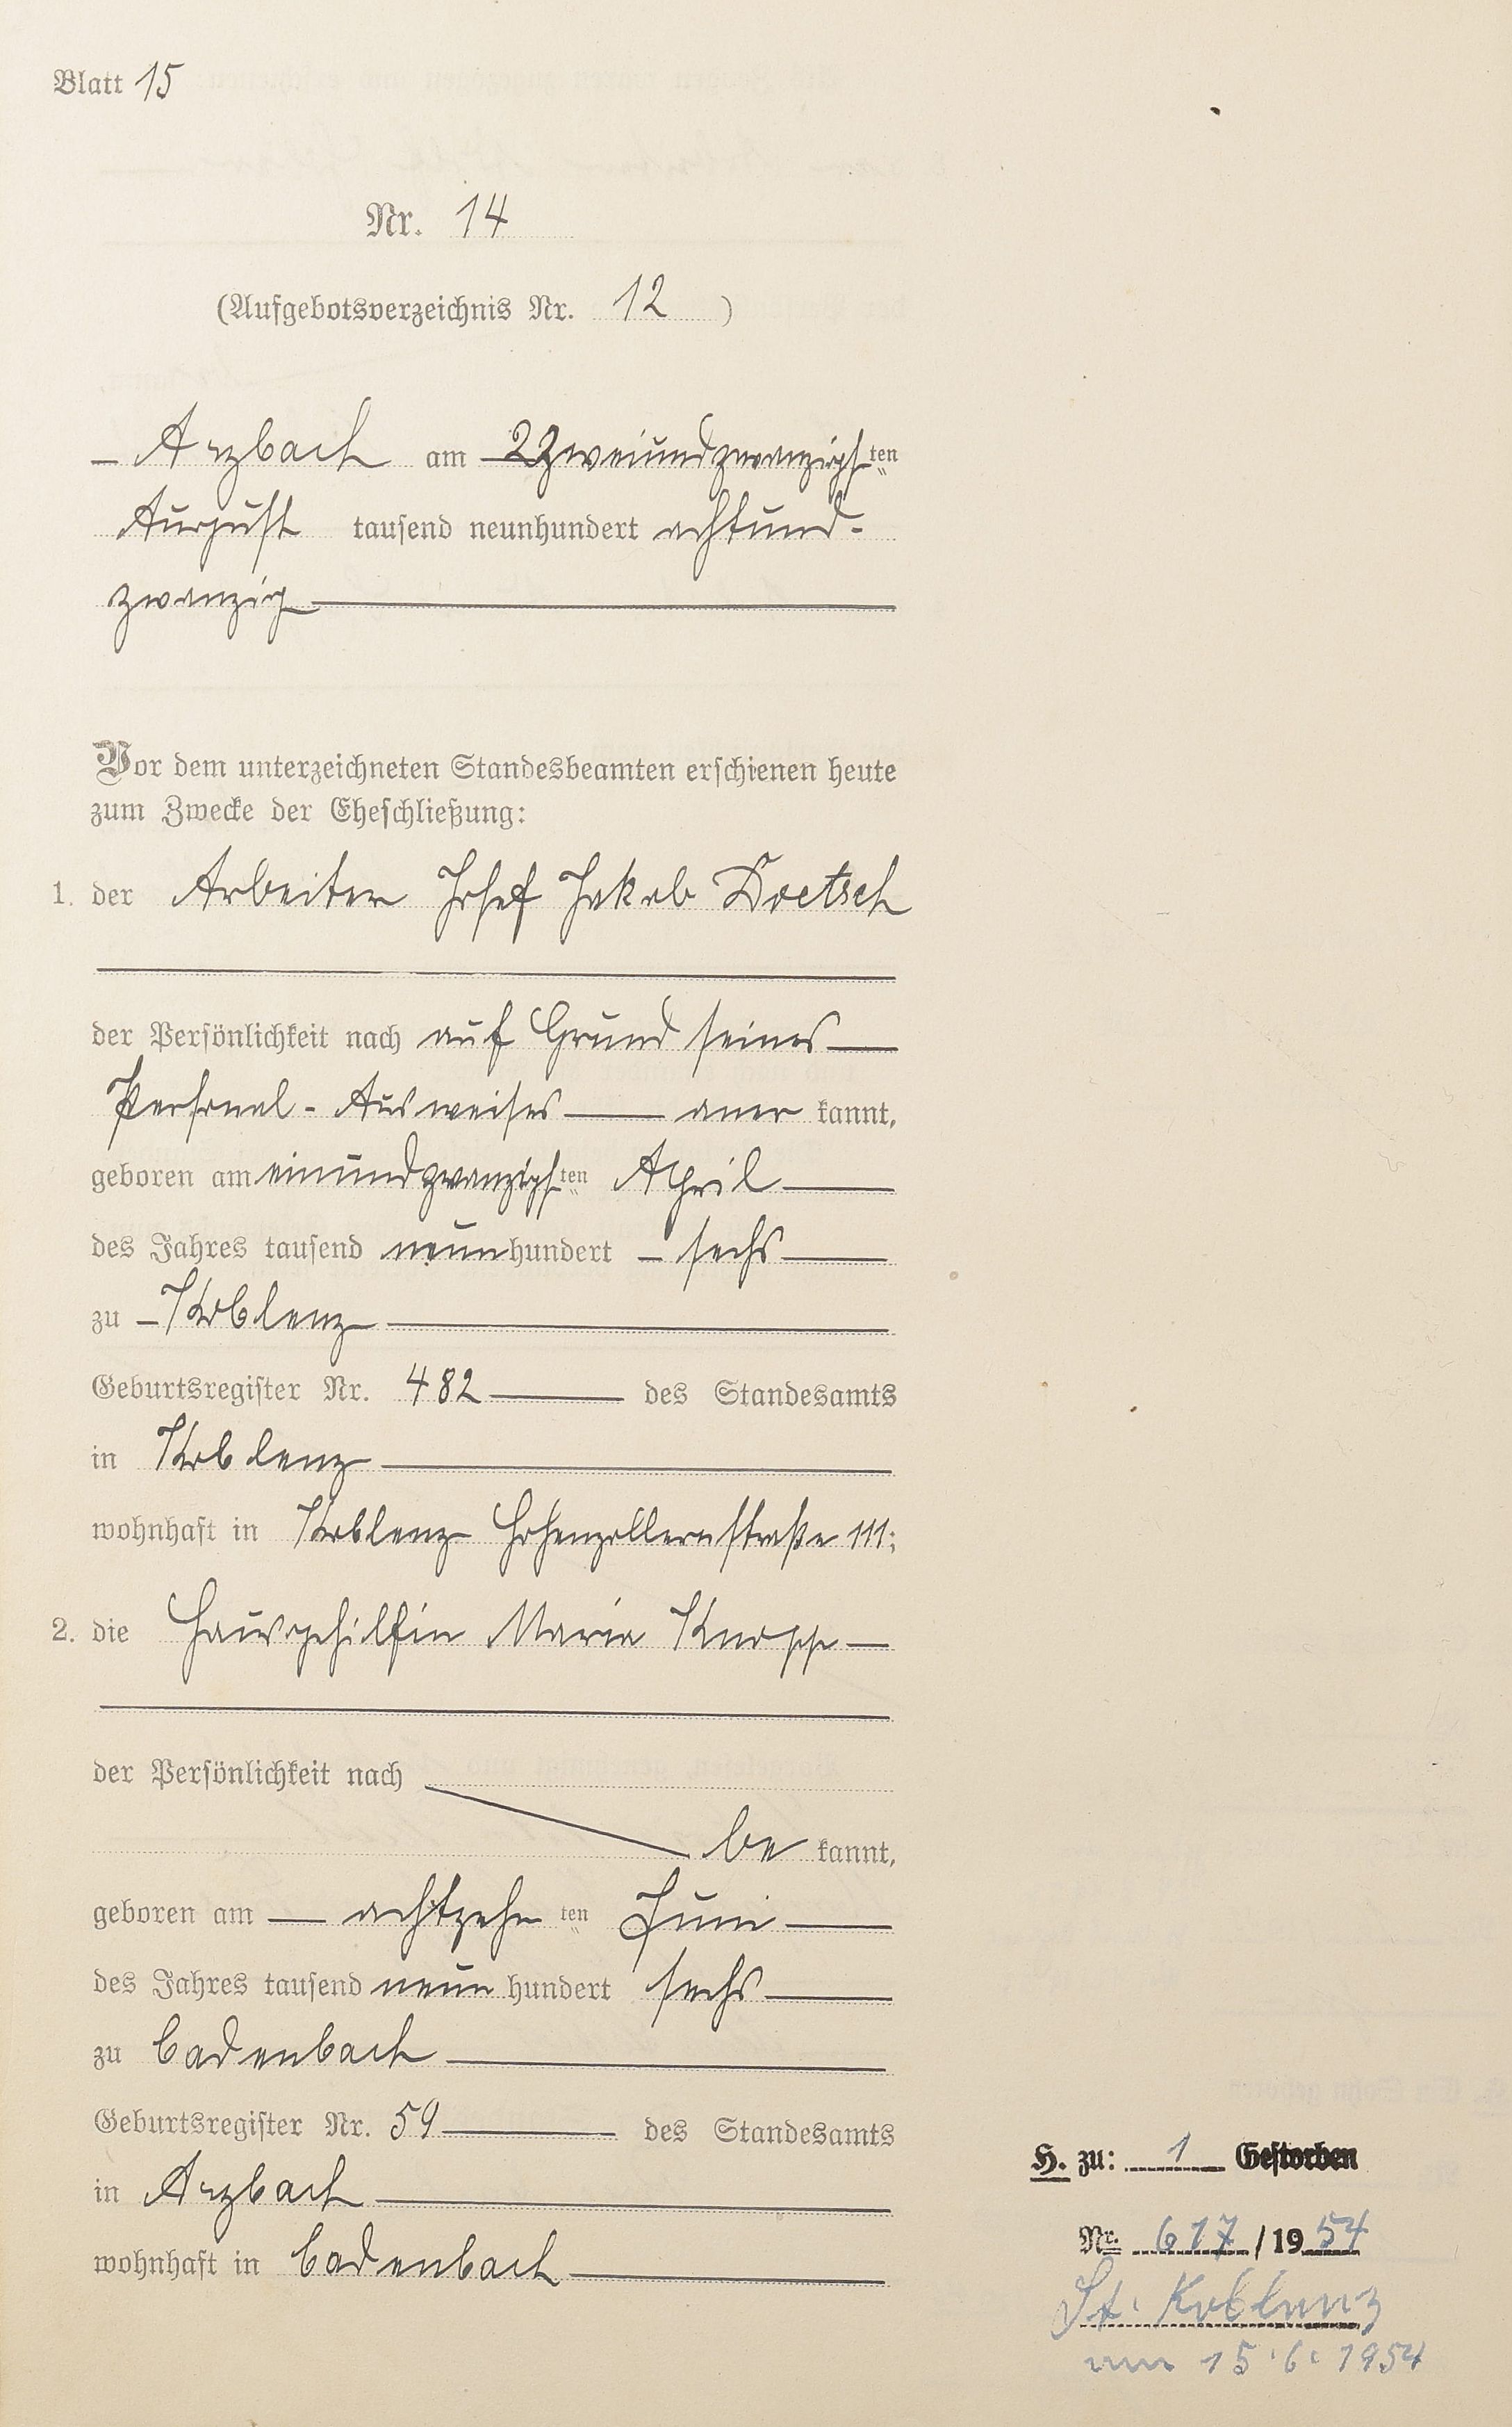 Blatt 15
Nr. 14
(Aufgebotsverzeichnis Nr. 12)
Arzbach am 22 zweiundzwanzigsten
August tausend neunhundert achtund-
zwanzig
Vor dem unterzeichneten Standesbeamten erschienen heute
zum Zwecke der Eheschließung:
1. der Arbeiter Josef Jakob Doetsch
der Persönlichkeit nach auf Grund seines
Personal-Ausweises anerkannt,
geboren am einundzwanzigsten April
des Jahres tausend neunhundert sechs
zu Koblenz
Geburtsregister Nr. 482 des Standesamts
in Koblenz
wohnhaft in Koblenz Hohenzollernstraße 111;
2. die Hausgehilfin Maria Knopp
der Persönlichkeit nach
bekannt,
geboren am achtzehnten Juni
des Jahres tausend neunhundert sechs
zu Cadenbach
Geburtsregister Nr. 59 des Standesamts
in Arzbach
wohnhaft in Cadenbach
H. zu: 1 Gestorben
Nr. 617/1954
St. Koblenz
am 15.6.1954